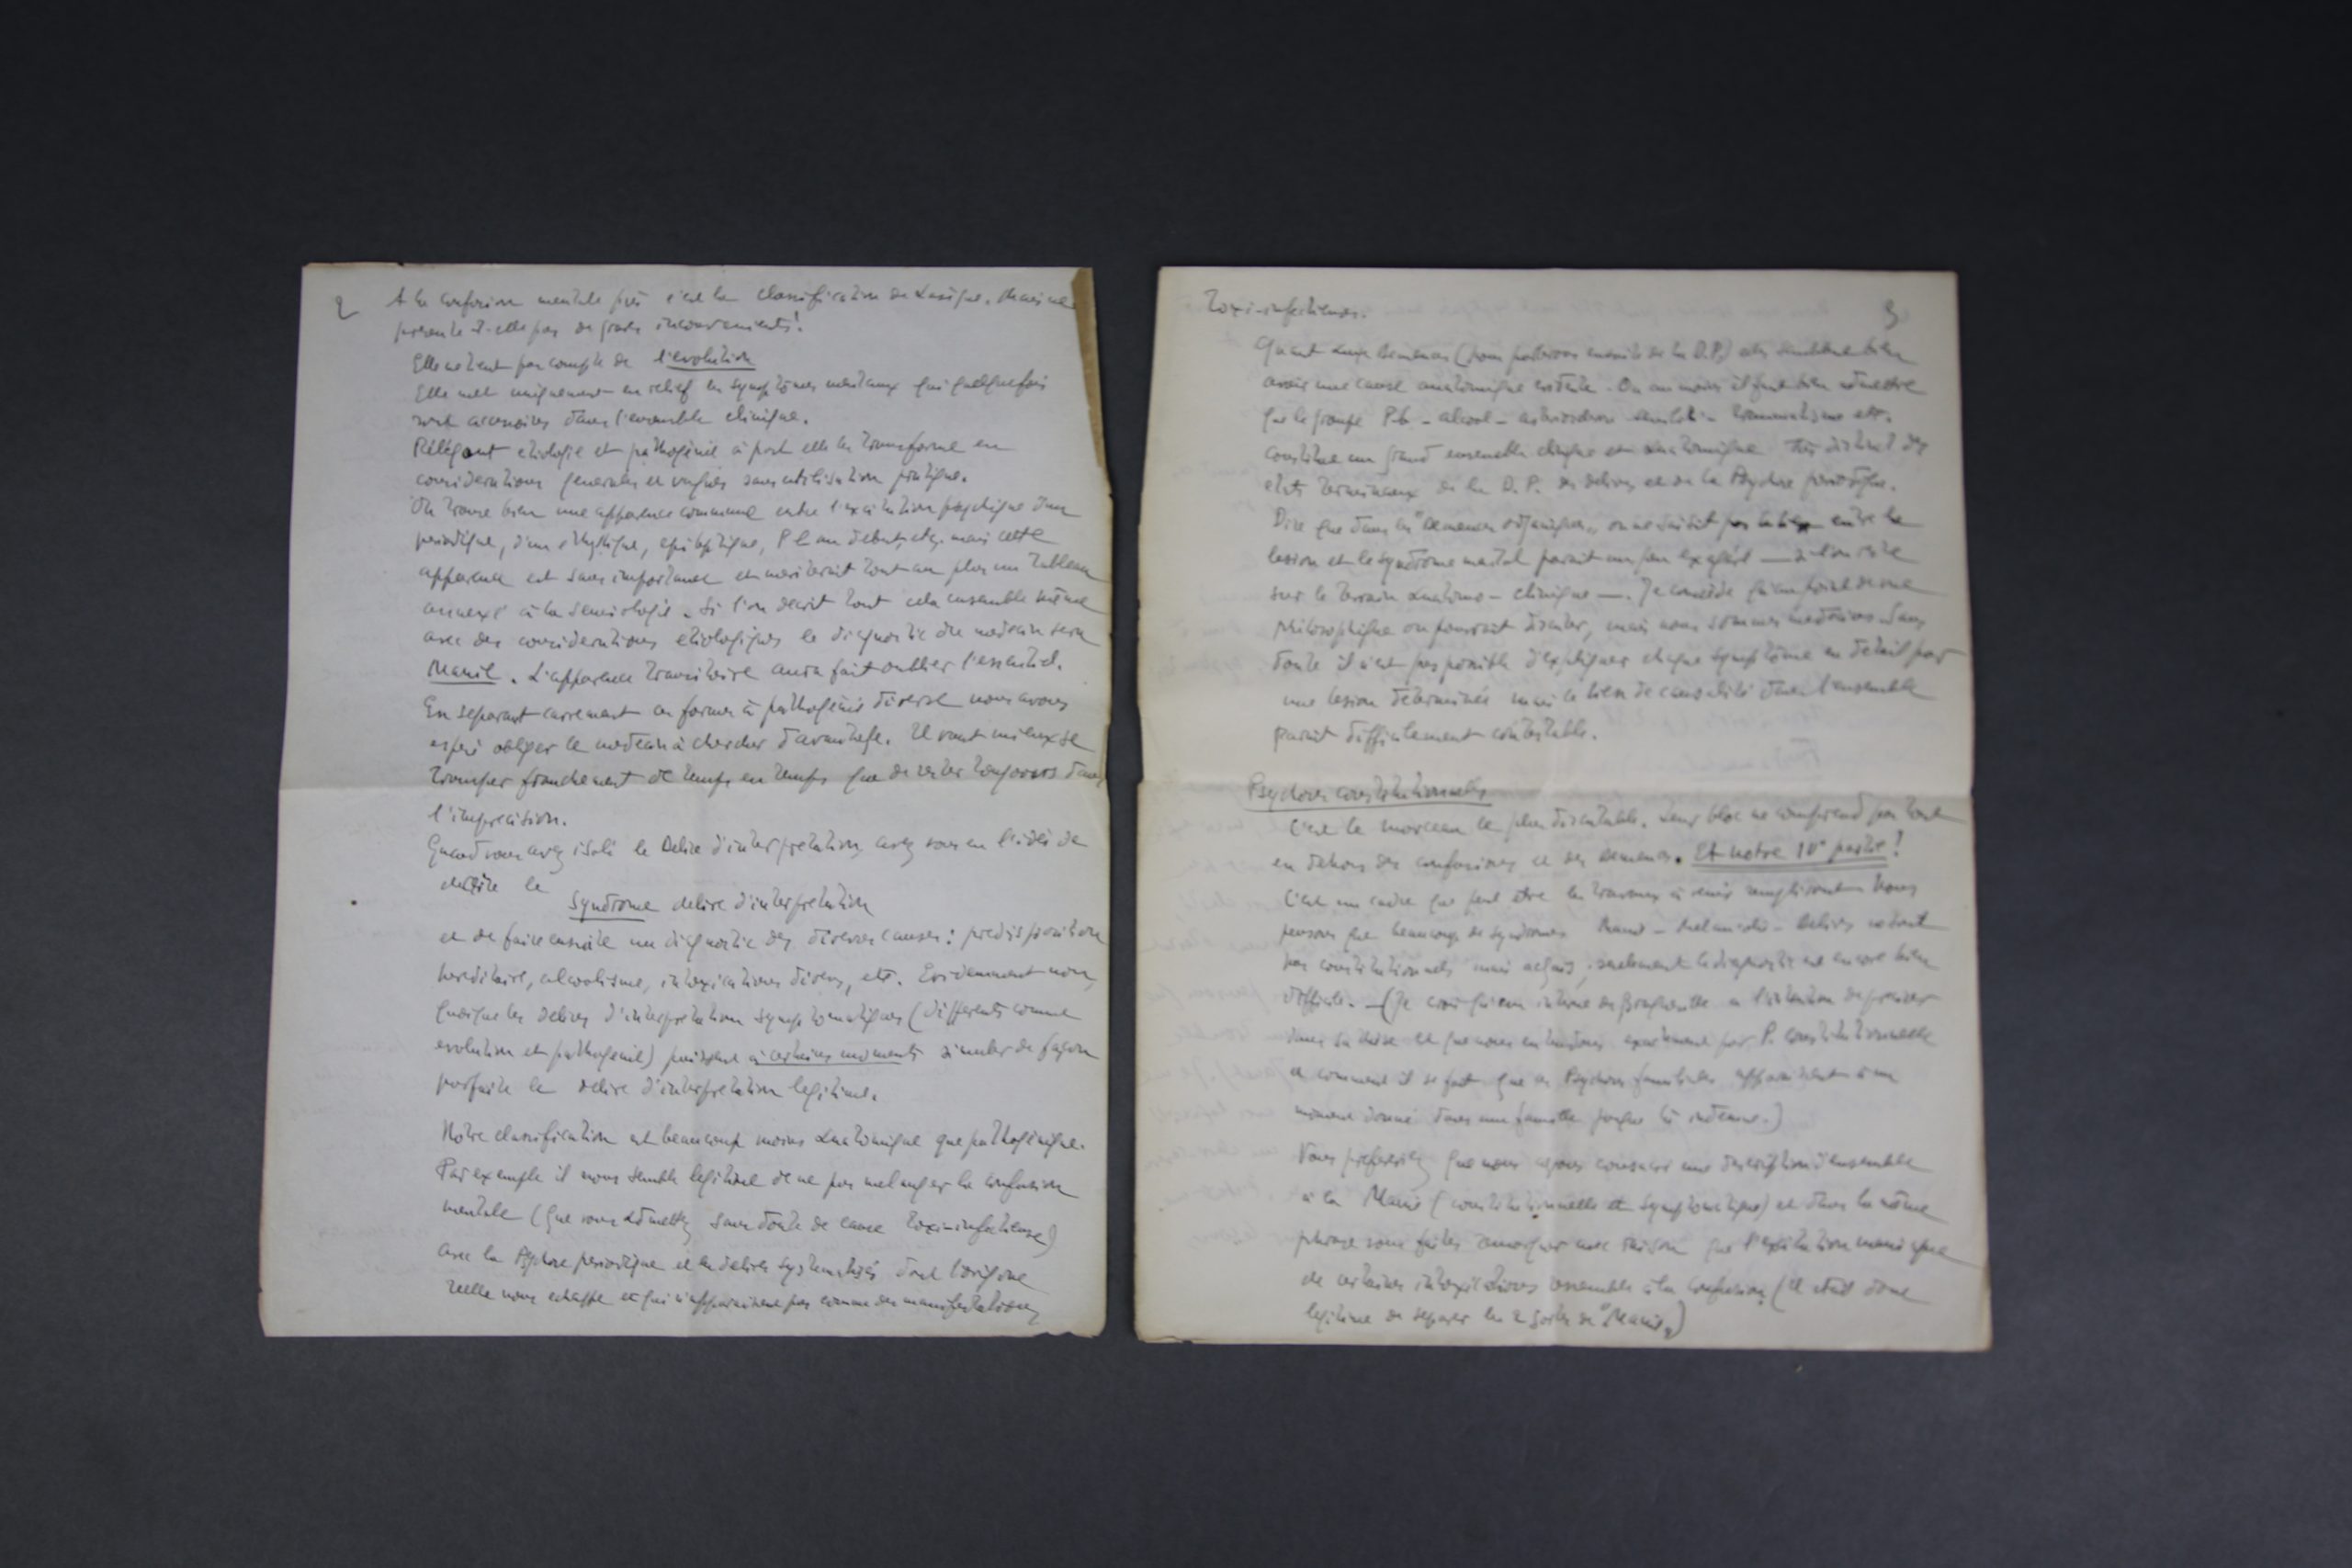 2
A la confusion mentale près c'est la classification de Lasègue. Mais ne
presente-t-elle pas de graves inconvenients!
Elle ne tient pas compte de l'evolution
Elle met uniquement en relief les symptômes mentaux qui quelquefois
sont accessoires dans l'ensemble clinique.
Relégant etiologie et pathogénie à part elle les transforme en
considerations generales et vagues sans utilisation pratique.
On trouve bien une apparence commune entre l'excitation psychique d'un
periodique, d'un epileptique, P G au debut, etc. mais cette
apparence est sans importance et meriterait tout au plus un tableau
annexé à la semiologie. Si l'on decrit tout cela ensemble même
avec des considerations etiologiques le diagnostic du medecin sera
Manie. L'apparence transitoire aura fait oublier l'essentiel.
En separant carrement ces formes à pathogénie diverse nous avons
espéré obliger le medecin à chercher davantage. Il vaut mieux se
tromper franchement de temps en temps que de rester toujours dans
l'imprecision.
Quand vous avez isolé le Delire d'interpretation, avez vous eu l'idée de
decrire le
Syndrome delire d'interpretation
et de faire ensuite un diagnostic des diverses causes: predisposition
hereditaire, alcoolisme, intoxications divers, etc. Evidemment non,
quoique les delires d'interpretation symptomatiques (differents comme
evolution et pathogenie) puissent à certains moments simuler de façon
parfaite le delire d'interpretation legitime.
Notre classification est beaucoup moins anatomique que pathogenique.
Par exemple il nous semble legitime de ne pas melanger la confusion
mentale (que vous admettez sans doute de cause toxi-infectieuse)
avec la Psychose periodique et les delires systematisés dont l'origine
reelle nous echappe et qui n'apparaissent pas comme des manifestations
3
toxi-infectieuses.
Quant aux demences (nous parlerons ensuite de la D.P.) elles semblent bien
avoir une cause anatomique evidente. On au moins il faut bien admettre
que le groupe P G - alcool - - traumatisme etc.
constitue un grand ensemble clinique et anatomique très distinct des
etats terminaux de la D.P. des delires et de la Psychose periodique.
Dire que dans les "demences organiques" on ne saisit pas le lien entre la
lesion et le syndrome mental parait un peu exagéré — si l'on reste
sur le terrain anatomo-clinique —. Je concède qu'au point de vue
philosophique on pourrait discuter, mais nous sommes medecins. Sans
doute il n'est pas possible d'expliquer chaque symptôme en detail par
une lesion determinée mais le lien de causalité dans l'ensemble
parait difficilement contestable.
Psychoses constitutionnelles
C'est le morceau le plus discutable. Leur bloc ne comprend pas tout
en dehors des confusions et des demences. Et notre 10e partie!
C'est un cadre que peut etre les travaux à venir rempliront. Nous
pensons que beaucoup de syndromes Manie - Melancolie - Delires ne sont
pas constitutionnels mais acquis, seulement le diagnostic est encore bien
difficile. — (Je crois qu'un interne de a l'intention de preciser
dans sa thèse ce que nous entendons exactement par P. constitutionnelle
et comment il se fait que ces Psychoses familiales apparaissent à un
moment donné dans une famille jusque là indemne.)
Vous prefereriez que nous ayons consacré une description d'ensemble
à la Manie (constitutionnelle et symptomatique) et dans la même
phrase vous faites remarquer avec raison que l'excitation maniaque
de certaines intoxications ressemble à la confusion (il etait donc
legitime de separer les 2 sortes de "Manie")